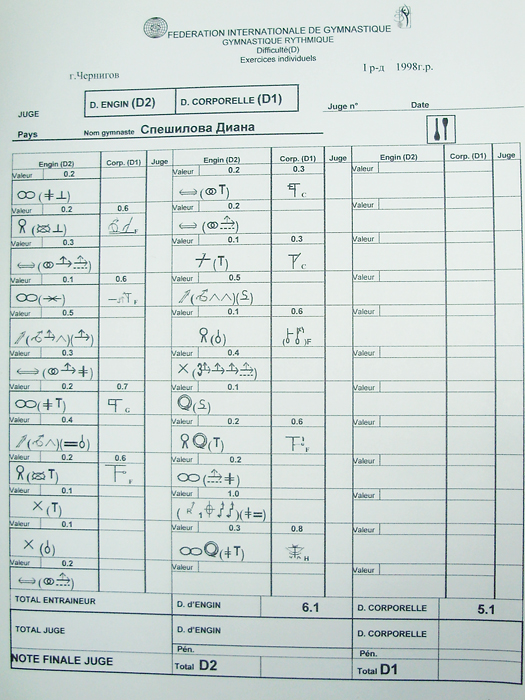 FEDERATION INTERNATIONALE DE GYMNASTIQUE
GYMNASTIQUE RYTHMIQUE
Difficulté(D)
Exercices individuels
г.Чернигов
I р-д 1998г.р.
JUGE
D. ENGIN (D2) D. CORPORELLE (D1)
Juge n° Date
Pays Nom gymnaste Спешилова Диана
Engin (D2) Corp. (D1) Juge Engin (D2) Corp. (D1) Juge Engin (D2) Corp. (D1) Juge
Valeur 0.2 Valeur 0.2 0.3 Valeur
(T) C
Valeur 0.2 0.6 Valeur 0.2 Valeur
F
Valeur 0.3 Valeur 0.1 0.3 Valeur
(T) C
Valeur 0.1 0.6 Valeur 0.5 Valeur
F (S)
Valeur 0.5 Valeur 0.1 0.6 Valeur
F
Valeur 0.3 Valeur 0.4 Valeur
3
Valeur 0.2 0.7 Valeur 0.1 Valeur
T G (S)
Valeur 0.4 Valeur 0.2 0.6 Valeur
(T) F
Valeur 0.2 0.6 Valeur 0.2 Valeur
T) F
Valeur 0.1 Valeur 1.0 Valeur
X (T)
Valeur 0.1 Valeur 0.3 0.8 Valeur
X T) H
Valeur 0.2 Valeur Valeur
TOTAL ENTRAINEUR D. d'ENGIN 6.1 D. CORPORELLE 5.1
TOTAL JUGE D. d'ENGIN D. CORPORELLE
Pén. Pén.
NOTE FINALE JUGE Total D2 Total D1